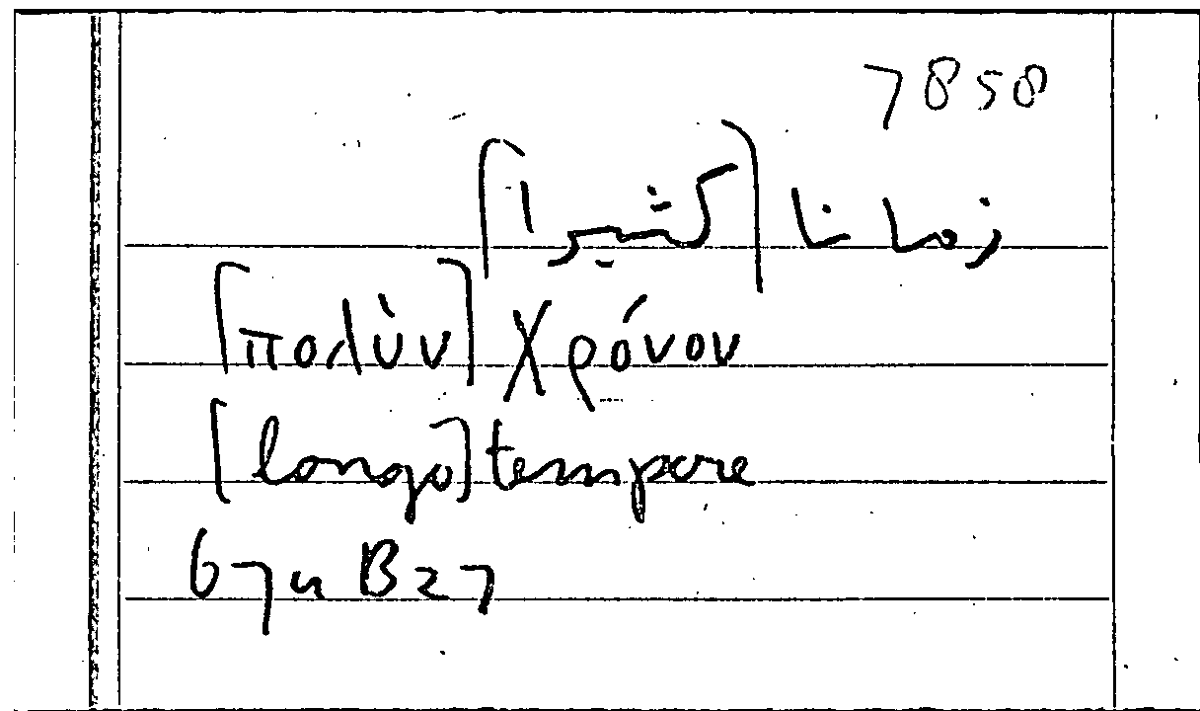 7858
زمانا [كثيرا]
[πολὺν] χρόνον
[longo] tempore
674 B 27